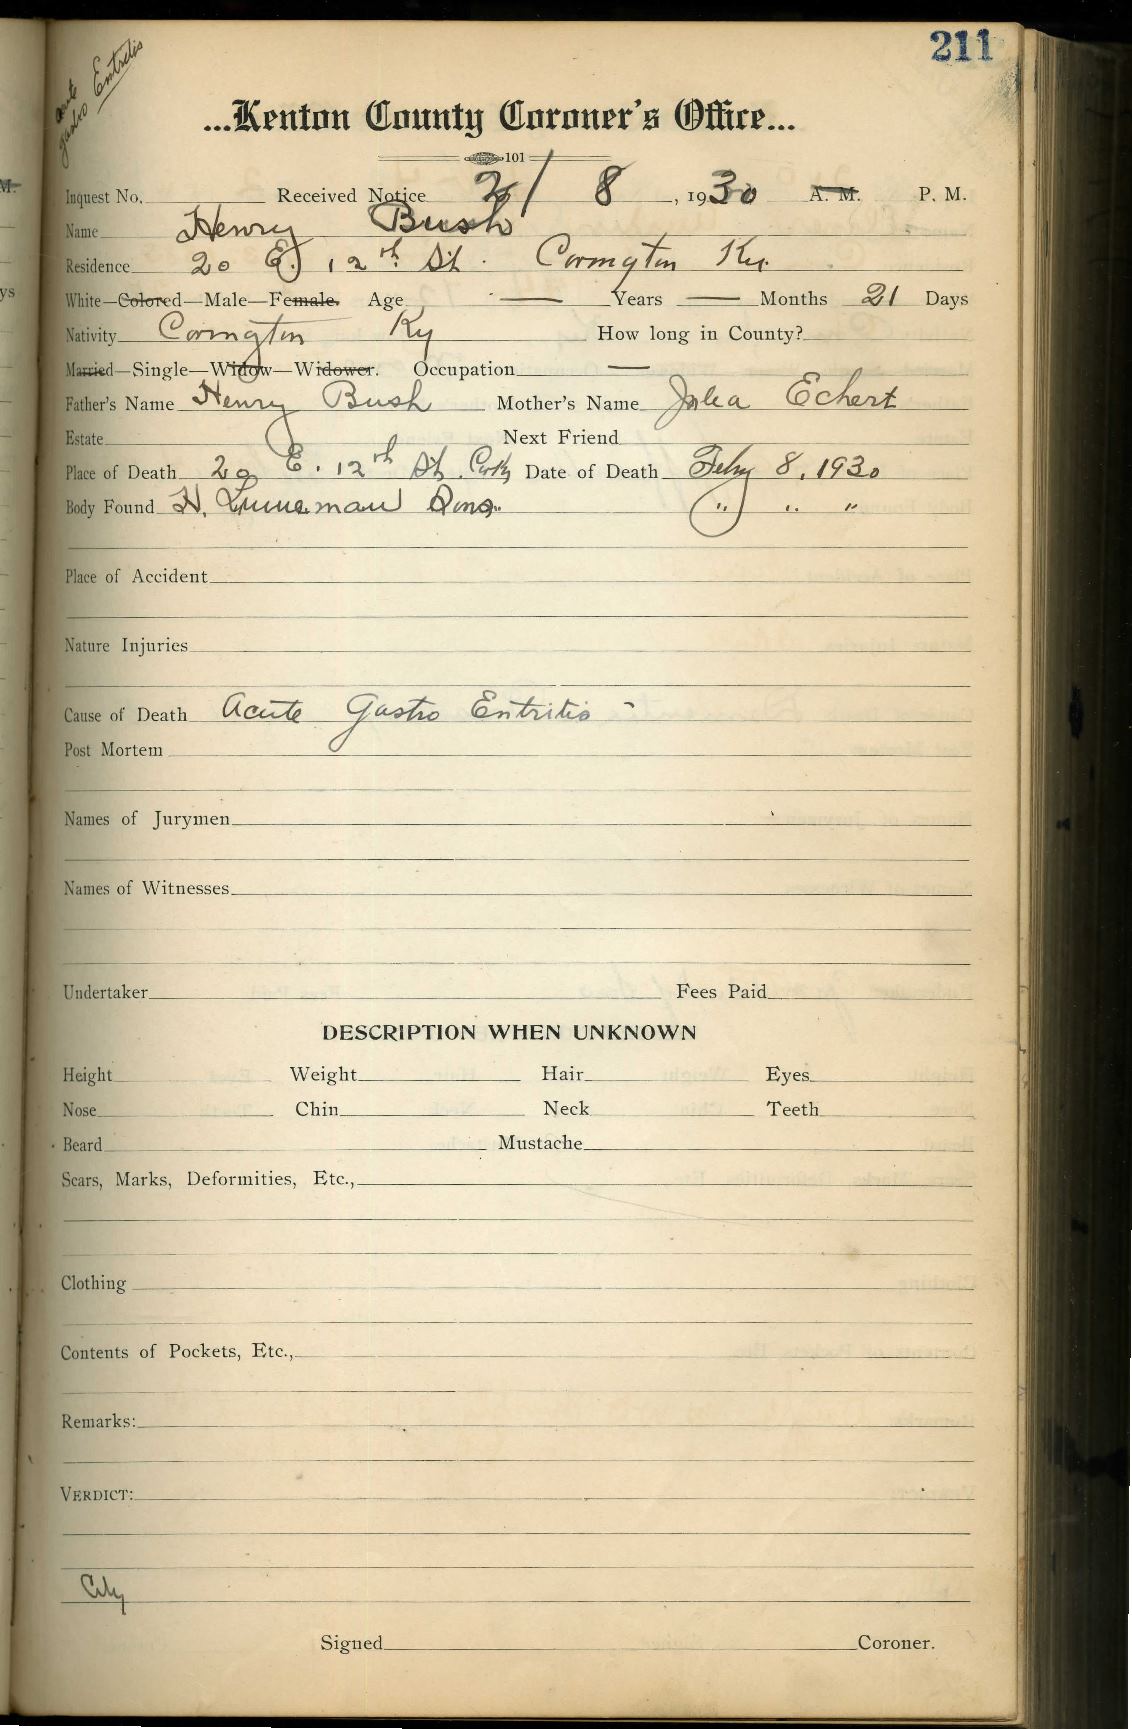 211
Acute
gastro Entritis
...Kenton County Coroner's Office...
101
Inquest No. Received Notice 2/ 8, 1930 A. M. P. M.
Name Henry Bush
Residence 20 E. 12th St. Covington Ky.
White—Colored—Male—Female. Age — Years — Months 21 Days
Nativity Covington Ky How long in County?
Married—Single—Widow—Widower. Occupation —
Father's Name Henry Bush Mother's Name Julia Echert
Estate Next Friend
Place of Death 20 E. 12th St. Date of Death Feby 8, 1930
Body Found H. Linneman Sons. " " "
Place of Accident
Nature Injuries
Cause of Death Acute Gastro Entritis -
Post Mortem
Names of Jurymen
Names of Witnesses
Undertaker Fees Paid
DESCRIPTION WHEN UNKNOWN
Height Weight Hair Eyes
Nose Chin Neck Teeth
Beard Mustache
Scars, Marks, Deformities, Etc.,
Clothing
Contents of Pockets, Etc.,
Remarks:
VERDICT:
City
Signed Coroner.